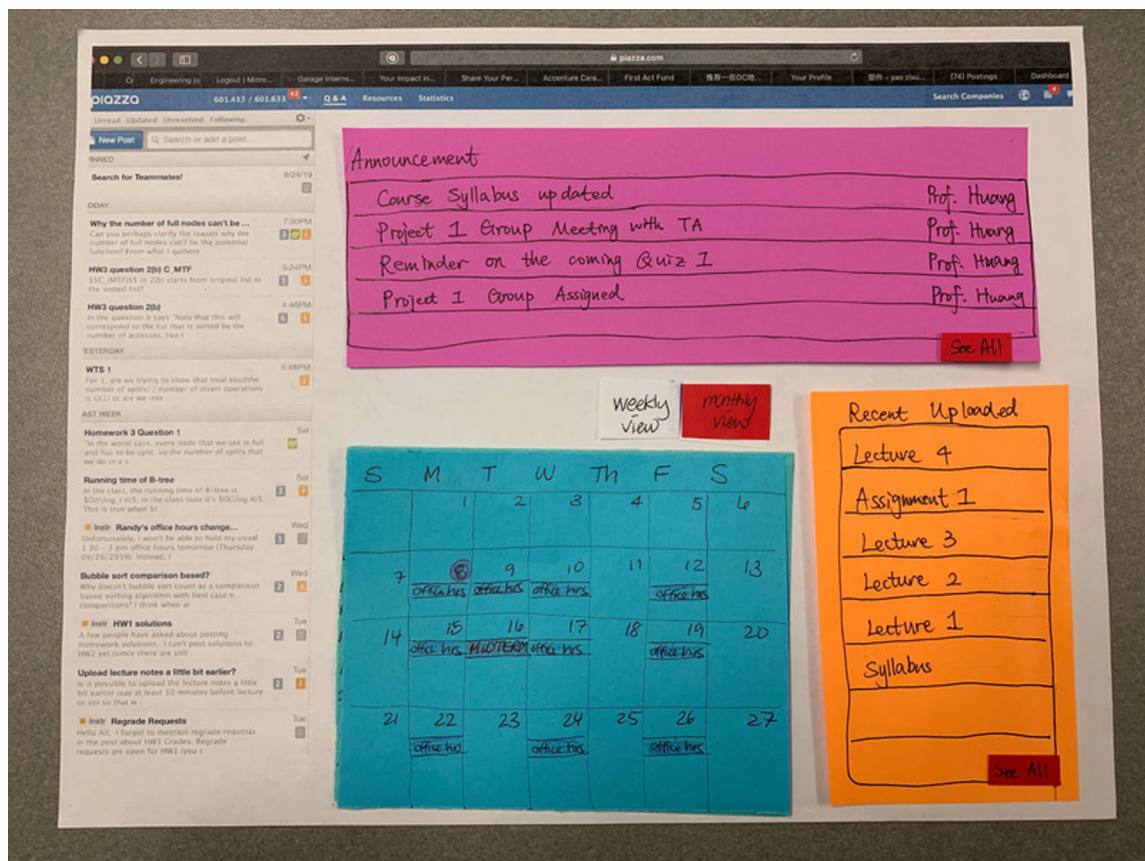 piazza.com
Engineering jo
Logout | Micro...
Garage Interns...
Your Impact in...
Share Your Per...
Accenture Care...
First Act Fund
推荐一些DC地...
Your Profile
(74) Postings
Dashboard
piazza
601.433 / 601.633
43
Q & A
Resources
Statistics
Search Companies
4
Unread Updated Unresolved Following
New Post
Search or add a post...
Search for Teammates!
8/24/19
ODAY
Why the number of full nodes can't be ...
7:30PM
Can you perhaps clarify the reason why the
number of full nodes can't be the potential
function? From what I gathere
HW3 question 2(b) C_MTF
5:24PM
$$C_{MTF}$$ in 2(b) starts from original list or
the sorted list?
HW3 question 2(b)
4:46PM
In the question it says "Note that this will
correspond to the list that is sorted by the
number of accesses, like i
ESTERDAY
WTS 1
6:48PM
For 1, are we trying to show that total cost(the
number of splits) / number of insert operations
is O(1) or are we inte
AST WEEK
Homework 3 Question 1
Sat
"in the worst case, every node that we see is full
and has to be split, so the number of splits that
we do in e s
Running time of B-tree
Sat
In the class, the running time of B-tree is
This is true when $t
Instr Randy's office hours change...
Wed
Unfortunately, I won't be able to hold my usual
1:30 - 3 pm office hours tomorrow (Thursday
09/26/2019). Instead, I
Bubble sort comparison based?
Wed
Why doesn't bubble sort count as a comparison
based sorting algorithm with best case n
comparisons? I think when ar
Instr HW1 solutions
Tue
A few people have asked about posting
homework solutions. I can't post solutions to
HW2 yet (since there are still
Upload lecture notes a little bit earlier?
Tue
Is it possible to upload the lecture notes a little
bit earlier (say at least 30 minutes before lecture
or so) so that w
Instr Regrade Requests
Tue
Hello All, I forgot to mention regrade requests
in the post about HW1 Grades. Regrade
requests are open for HW1 (you c
Announcement
Course Syllabus updated Prof. Huang
Project 1 Group Meeting with TA Prof. Huang
Reminder on the coming Quiz 1 Prof. Huang
Project 1 Group Assigned Prof. Huang
See All
weekly
view
monthly
view
S M T W Th F S
1 2 3 4 5 6
7 8 9 10 11 12 13
office hrs office hrs office hrs office hrs
14 15 16 17 18 19 20
office hrs MIDTERM office hrs office hrs
21 22 23 24 25 26 27
office hrs office hrs office hrs
Recent Uploaded
Lecture 4
Assignment 1
Lecture 3
Lecture 2
Lecture 1
Syllabus
See All